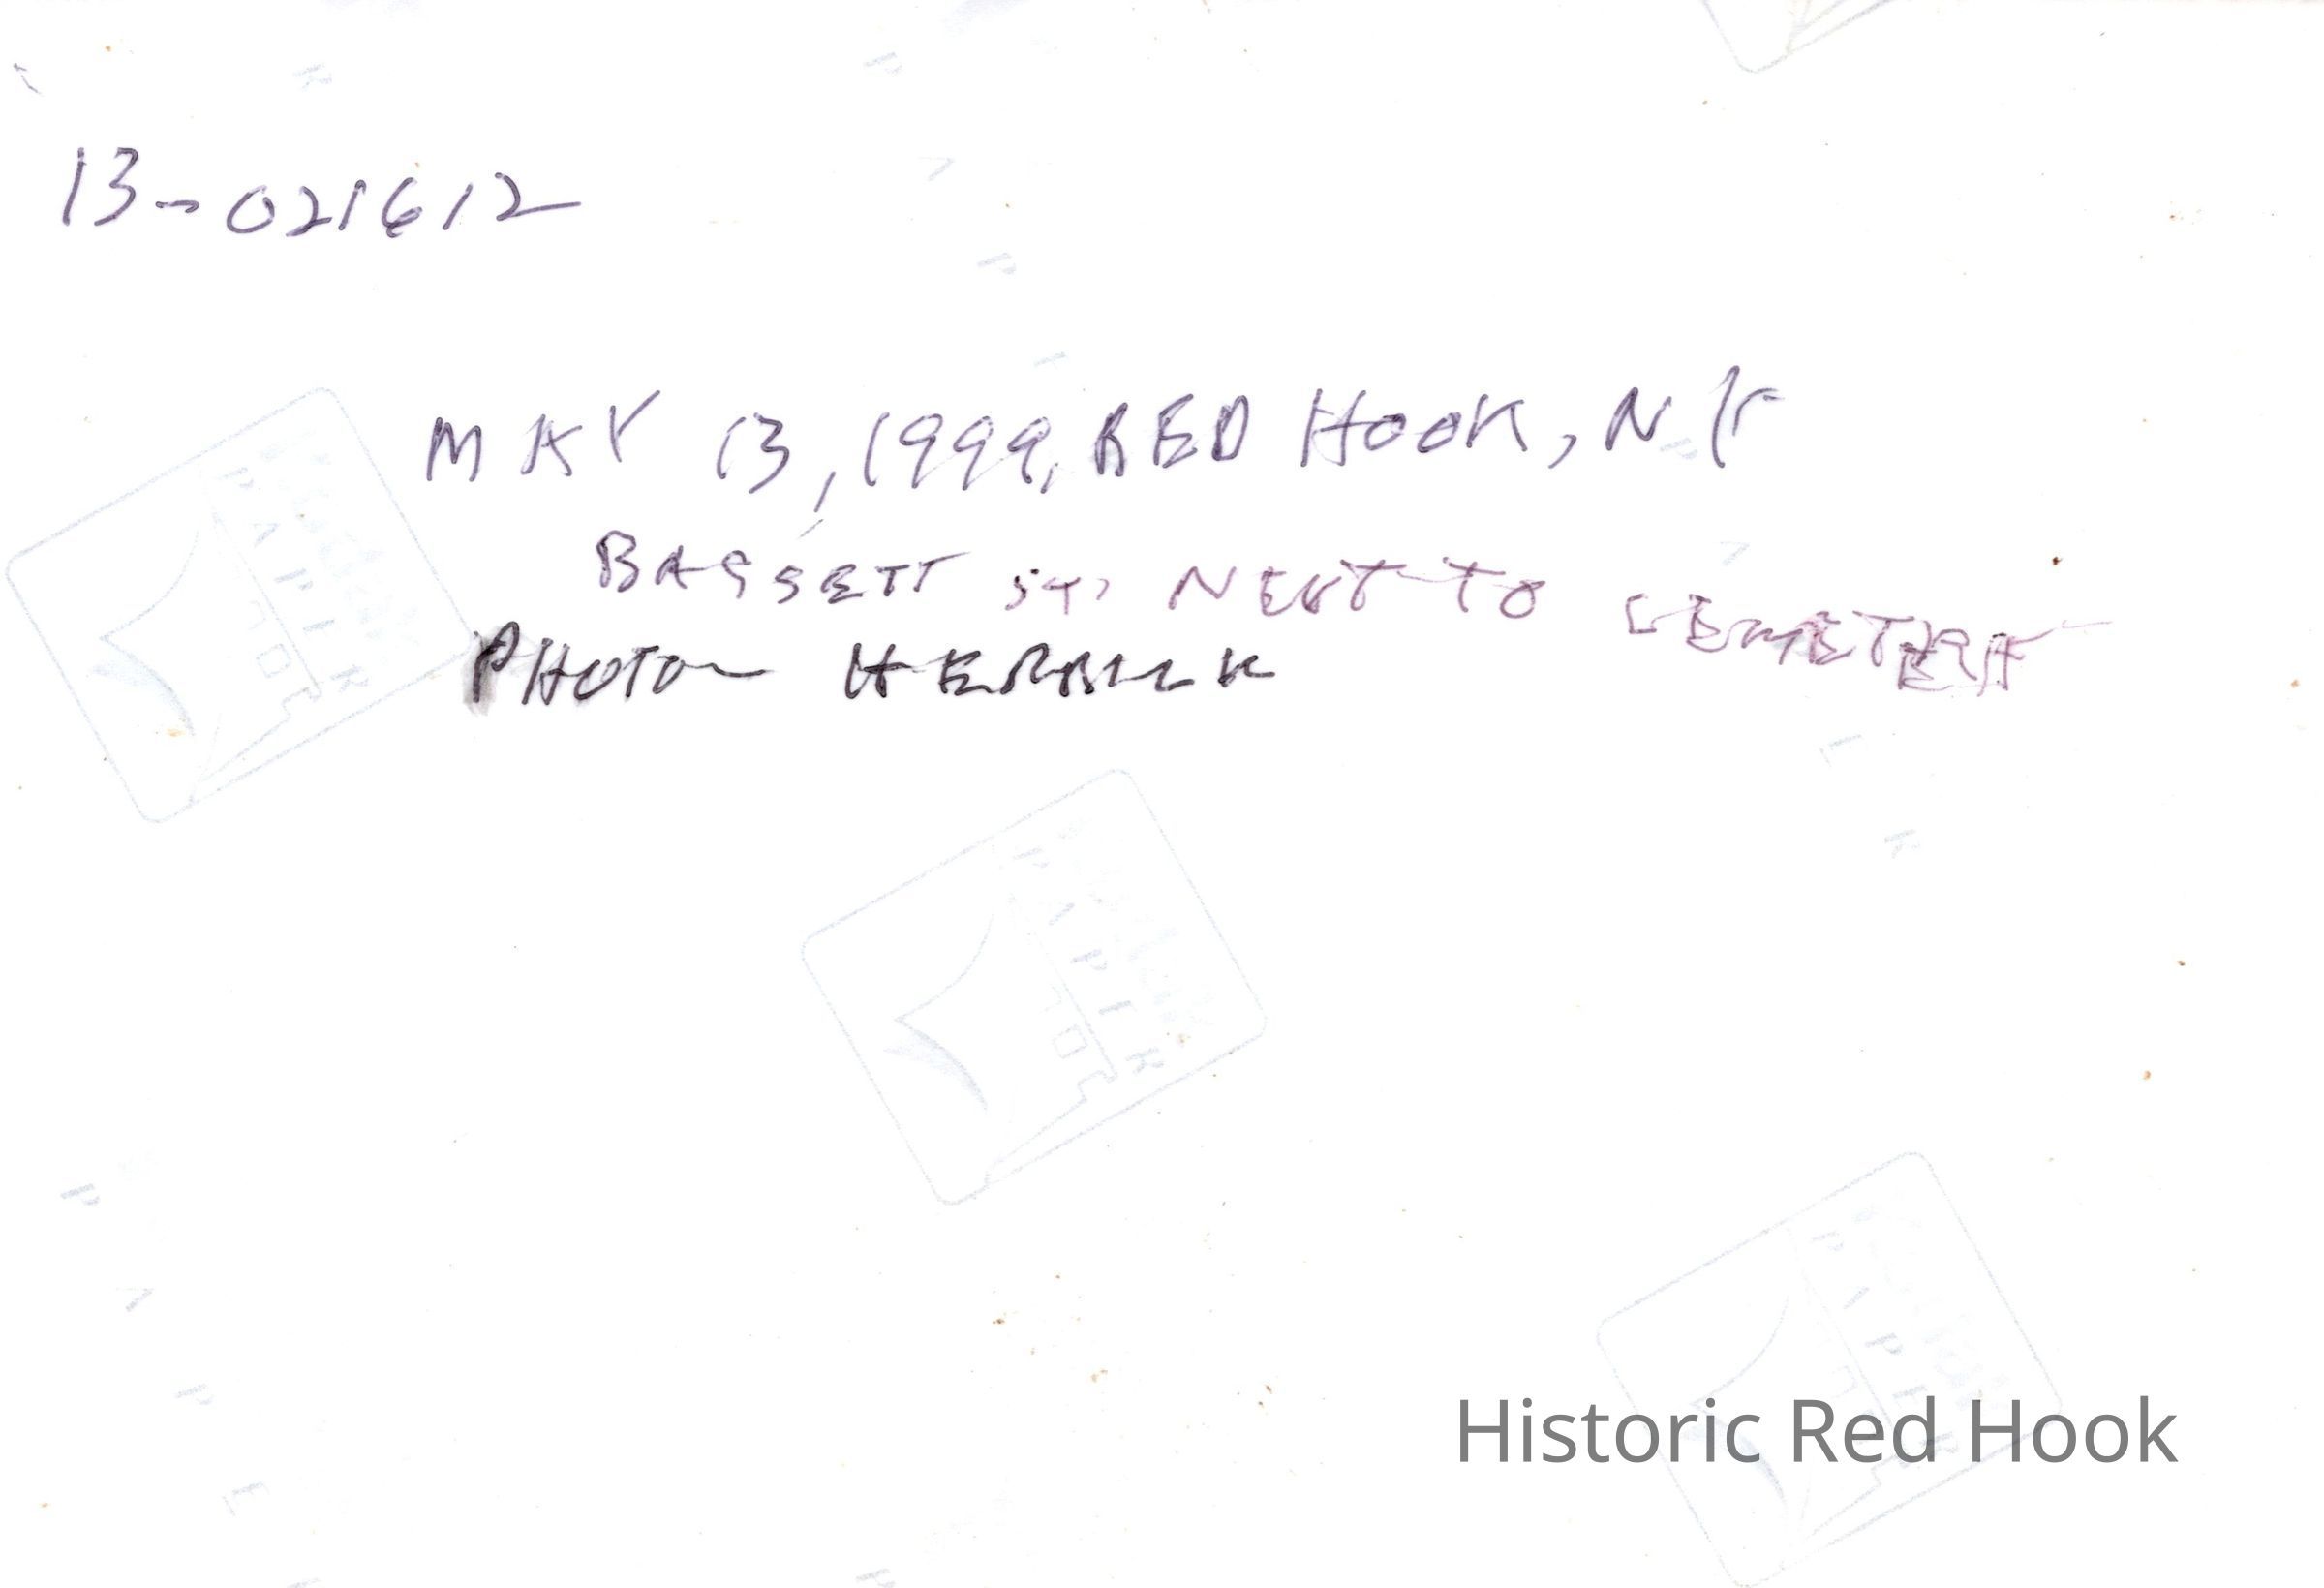 13-021612
MAY 13, 1999, RED HOOK, NY
BASSETT ST, NEXT TO CEMETERY
PHOTO
Historic Red Hook